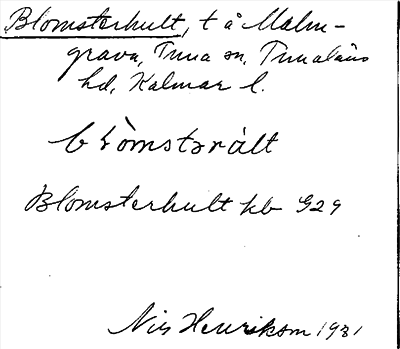 Blomsterhult, t å Malm-
grava, Tuna sn, Tunaläns
hd, Kalmar l.
blòmstərált
Blomsterhult kb G29
Nils Henriksson 1931